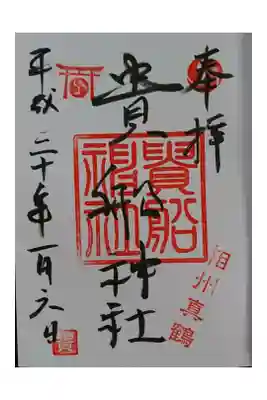 奉拝
貴船神社
貴船神社
相州真鶴
平成二十年一月六日